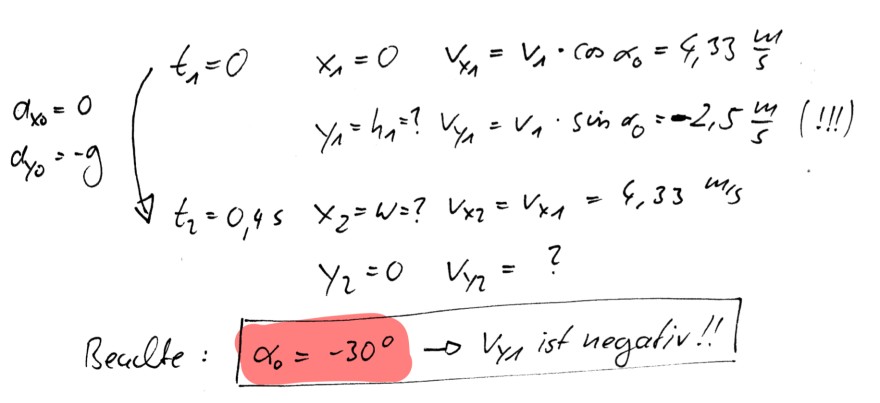 t₁=0 x₁=0 Vₓ₁ = V₁ · cos α₀ = 4,33 m/s
aₓ₀ = 0
y₁=h₁=? V_y₁ = V₁ · sin α₀ = -2,5 m/s (!!!)
a_y₀ = -g
t₂=0,4s x₂=W=? Vₓ₂ = Vₓ₁ = 4,33 m/s
y₂=0 V_y₂ = ?
Beachte : α₀ = -30° → V_y₁ ist negativ!!